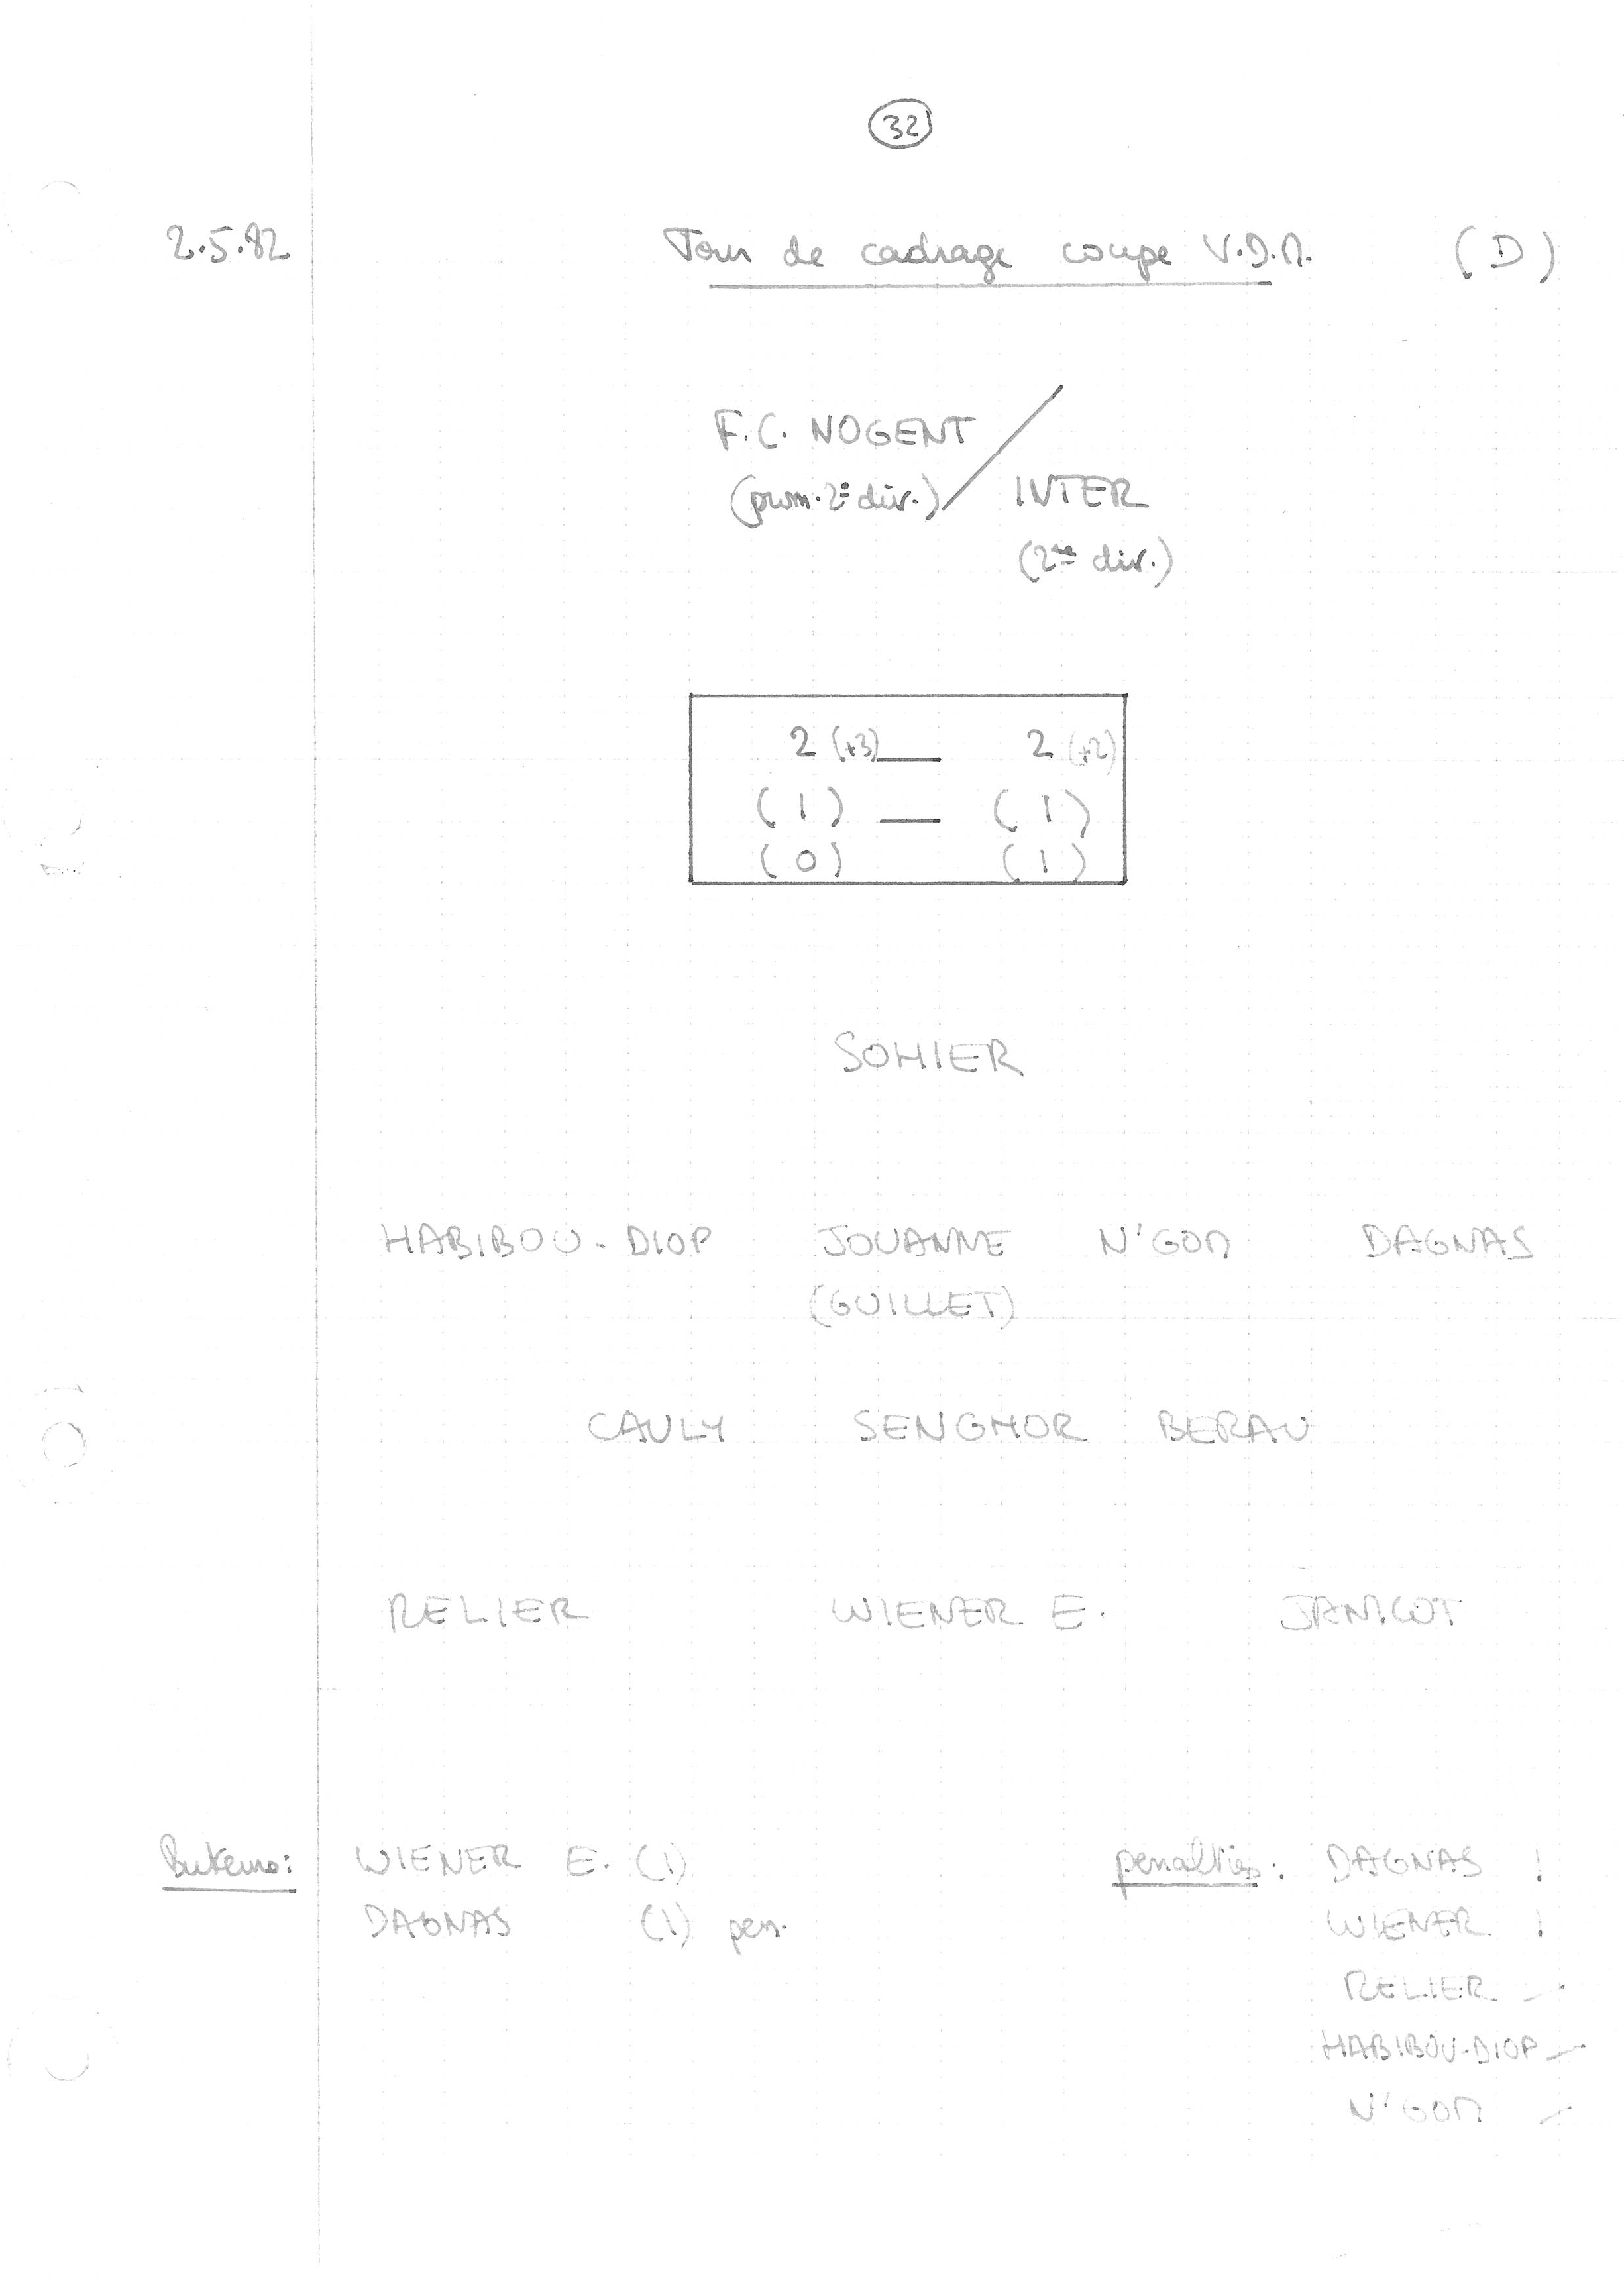 32
2.5.82 Tour de cadrage coupe V.D.M. (D)
F.C. NOGENT /
(prom. 2e div.) INTER
(2me div.)
2 (+3) — 2 (+2)
(1) — (1)
(0) (1)
SOHIER
HABIBOU-DIOP JOUANNE N'GOM DAGNAS
(GUILLET)
CAULY SENGHOR BERAU
RELIER WIENER E. JANICOT
Buteurs: WIENER E. (1) penalties: DAGNAS !
DAGNAS (1) pen. WIENER !
RELIER —
HABIBOU-DIOP —
N'GOM —